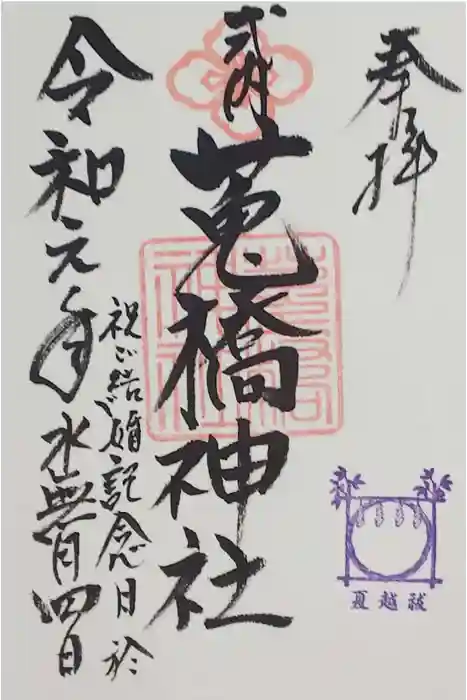 奉拝
式内
菟橋神社
祝ご結婚記念日於
令和元年水無月四日
夏越祓